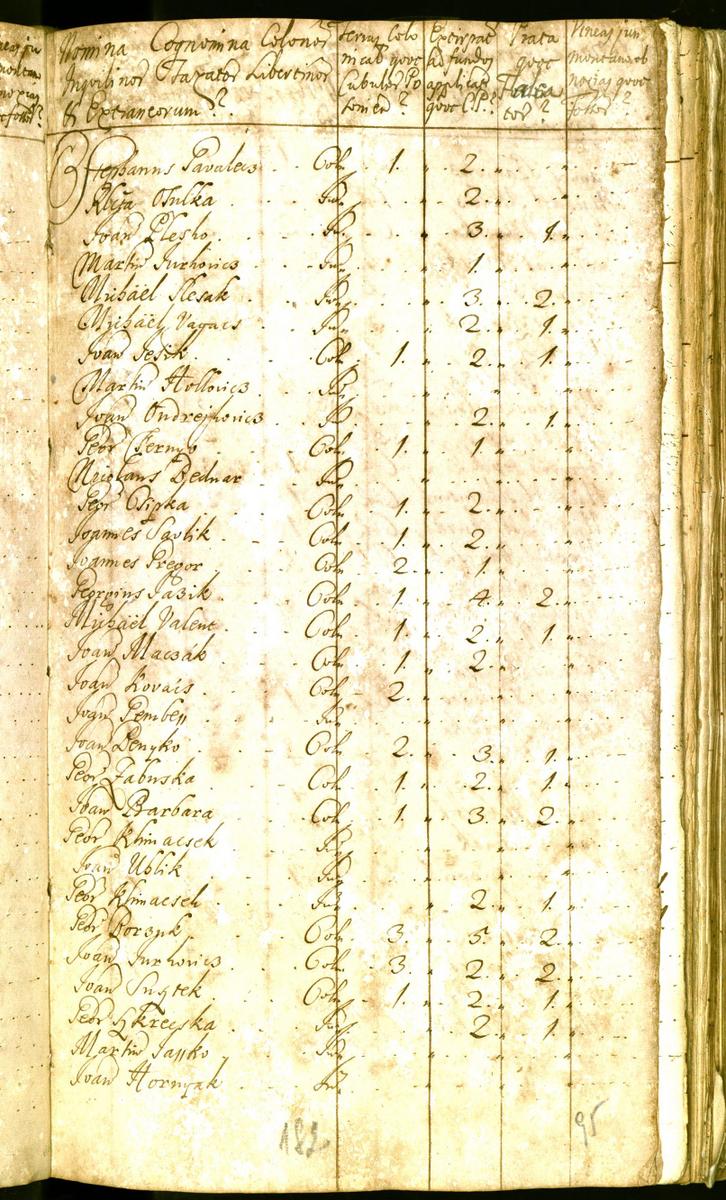 Nomina Cognomina Colonor
Inquilinor Taxator Libertinor
& Extraneorum?
Terras Colo
nicat quot
Cubulor Po
sonien?
Extirpat
ad fundos
applicat
quot C.P.?
Prata
quot
Falca
tor?
Vineas jux
montaneob
noxias quot
Fossor?
Stephanus Pavalecz Col. 1. 2.
Elias Tulka Inq 2.
Joan Plesho Inq 3. 1.
Martin Jurkovics Inq 1.
Michael Klesak Inq 3. 2.
Michael Vagacs Inq 2. 1.
Joan Jesik Col. 1. 2. 1.
Martin Hollovics Inq
Joan Ondrejkovics Inq 2. 1.
Petr Cserny Col. 1. 1.
Nicolaus Bednar Inq
Petr Csipka Col. 1. 2.
Joannes Pavlik Col. 1. 2.
Joannes Gregor Col. 2. 1.
Georgius Jasik Col. 1. 4. 2.
Michael Valent Col. 1. 2. 1.
Joan Maczak Col. 1. 2.
Joan Kovacs Col. 2.
Joan Inq
Joan Benyko Col. 2. 3. 1.
Petr Zabuska Col. 1. 2. 1.
Joan Barbara Col. 1. 3. 2.
Petr Klimacsek Inq
Joan Ublik Inq
Petr Klimacsek Inq 2. 1.
Petr Col. 3. 5. 2.
Joan Jurkovics Col. 3. 2. 2.
Joan Col. 1. 2. 1.
Petr Skrecska Inq 2. 1.
Martin Inq
Joan Hornyak Inq
95